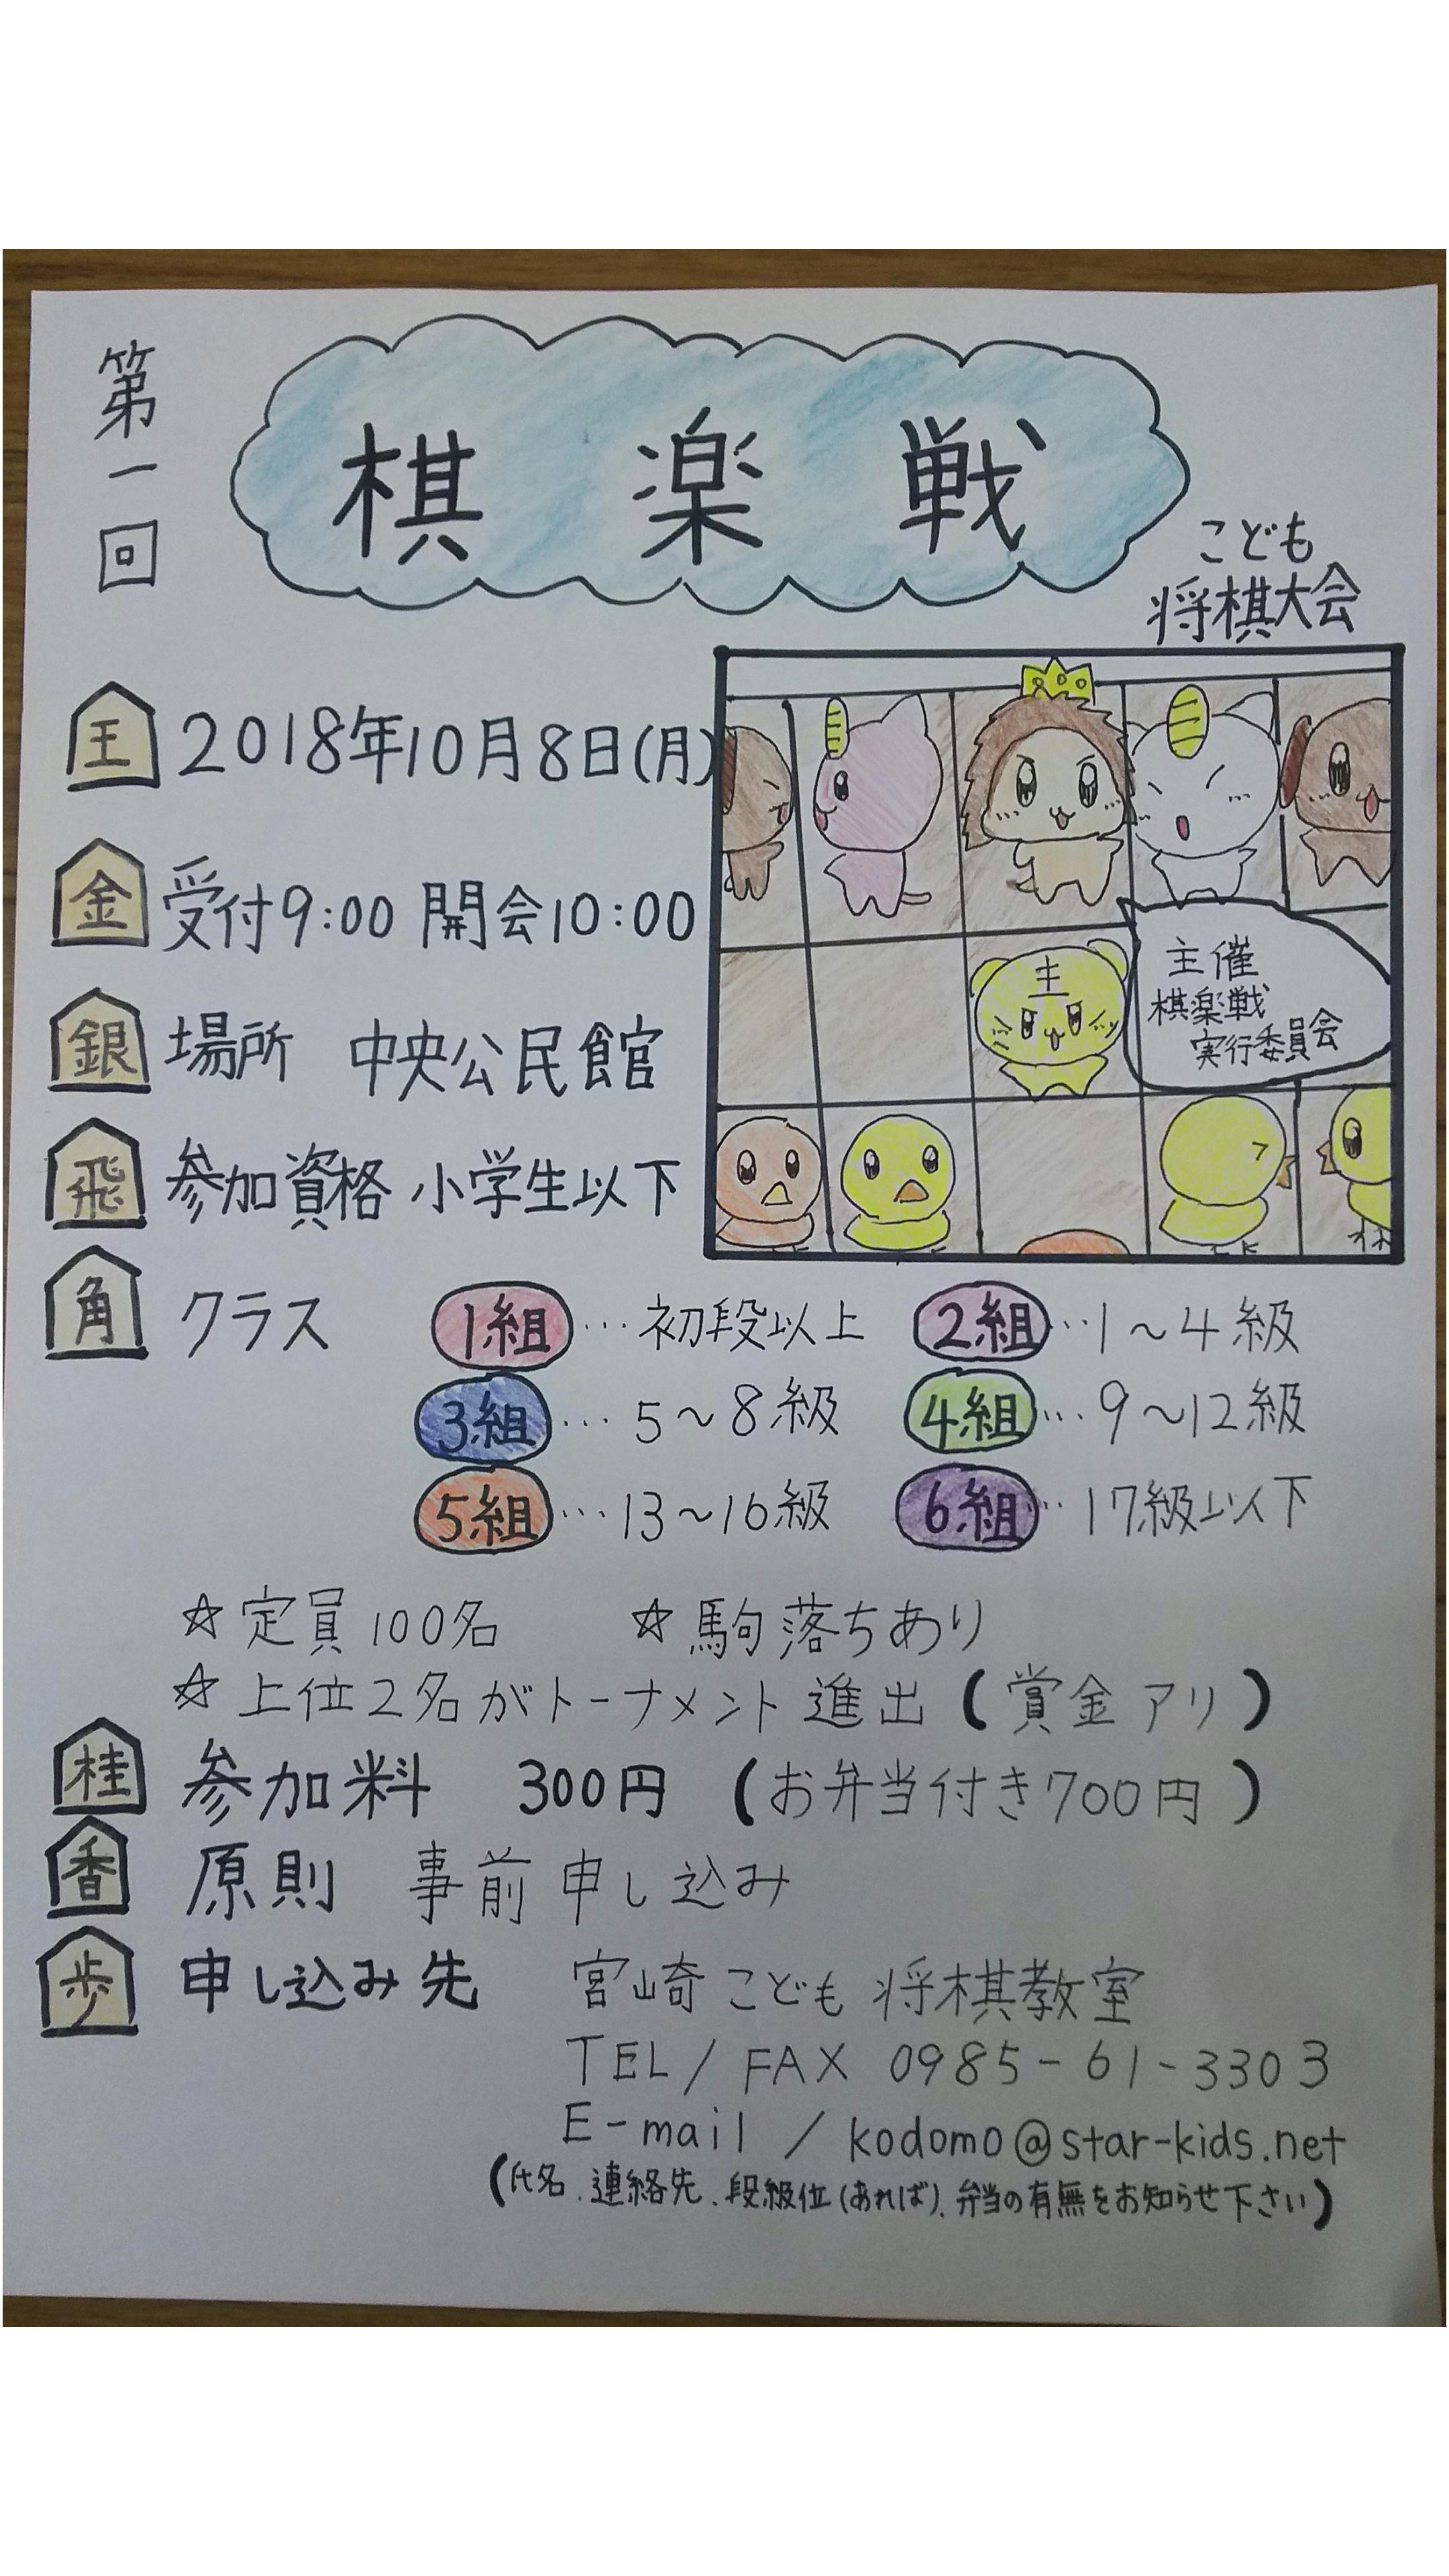 第一回
棋楽戦
こども
将棋大会
王 2018年10月8日(月)
金 受付9:00 開会10:00
銀 場所 中央公民館
飛 参加資格 小学生以下
主催
棋楽戦
実行委員会
角 クラス 1組…初段以上 2組…1～4級
3組…5～8級 4組…9～12級
5組…13～16級 6組…17級以下
☆定員100名 ☆駒落ちあり
☆上位2名がトーナメント進出(賞金アリ)
桂 参加料 300円 (お弁当付き700円)
香 原則 事前申し込み
歩 申し込み先 宮崎こども将棋教室
TEL/FAX 0985-61-3303
E-mail / kodomo@star-kids.net
(氏名、連絡先、段級位(あれば)、弁当の有無をお知らせ下さい)